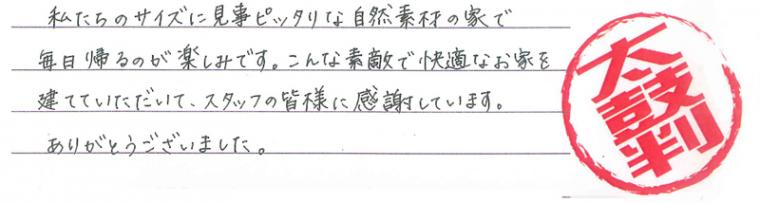 私たちのサイズに見事ピッタリな自然素材の家で
毎日帰るのが楽しみです。こんな素敵で快適なお家を
建てていただいて、スタッフの皆様に感謝しています。
ありがとうございました。
太鼓判